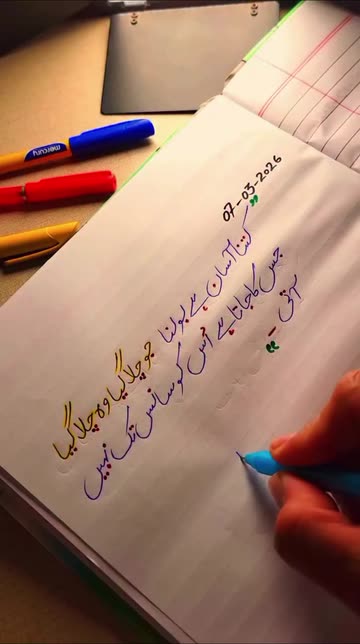 mercury
07-03-2026
"کتنا آسان ہے بولنا جو چلا گیا وہ چلا گیا
جس کا جاتا ہے اُس کو سانس تک نہیں
آتی -"